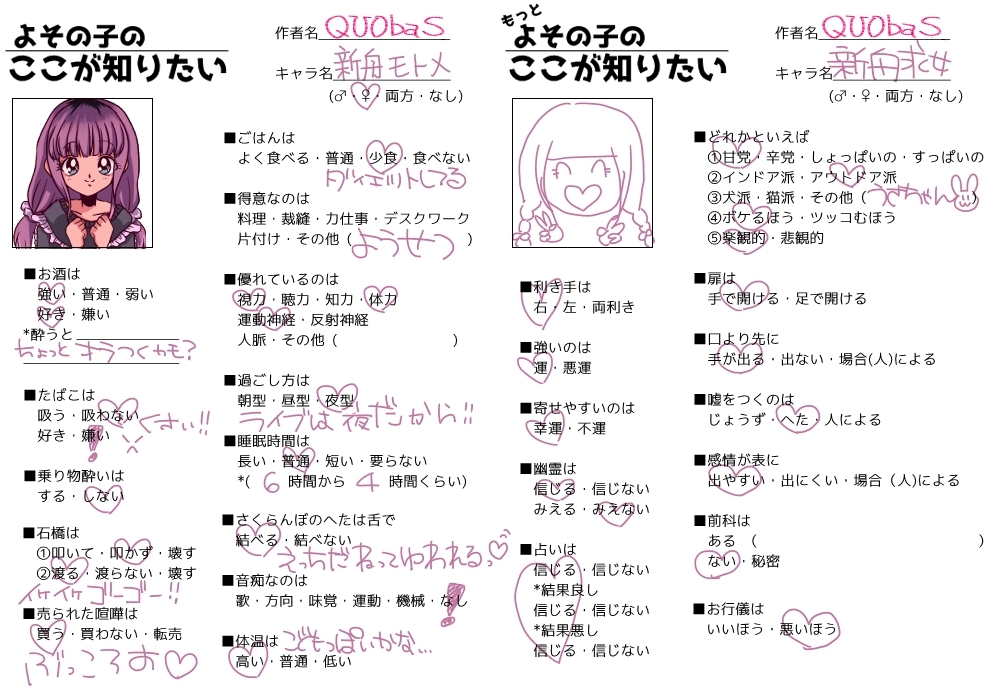 よその子の
ここが知りたい
作者名 QUObaS
キャラ名 新舟モトメ
(♂・♀・両方・なし)
■お酒は
強い・普通・弱い
好き・嫌い
*酔うと
ちょっとオラつくカモ?
■たばこは
吸う・吸わない
好き・嫌い! くさい!!
■乗り物酔いは
する・しない
■石橋は
①叩いて・叩かず・壊す
②渡る・渡らない・壊す
イケイケゴーゴー!!
■売られた喧嘩は
買う・買わない・転売
ぶっころお♡
■ごはんは
よく食べる・普通・少食・食べない
ダイエットしてる
■得意なのは
料理・裁縫・力仕事・デスクワーク
片付け・その他(ようせつ)
■優れているのは
視力・聴力・知力・体力
運動神経・反射神経
人脈・その他( )
■過ごし方は
朝型・昼型・夜型
ライブは夜だから!!
■睡眠時間は
長い・普通・短い・要らない
*( 6 時間から 4 時間くらい)
■さくらんぼのへたは舌で
結べる・結べない
えっちだねってゆわれるっ♡
■音痴なのは
歌・方向・味覚・運動・機械・なし!
■体温は こどもっぽいかな…
高い・普通・低い
もっと
よその子の
ここが知りたい
作者名 QUObaS
キャラ名 新舟求女
(♂・♀・両方・なし)
■利き手は
右・左・両利き
■強いのは
運・悪運
■寄せやすいのは
幸運・不運
■幽霊は
信じる・信じない
みえる・みえない
■占いは
信じる・信じない
*結果良し
信じる・信じない
*結果悪し
信じる・信じない
■どれかといえば
①甘党・辛党・しょっぱいの・すっぱいの
②インドア派・アウトドア派
③犬派・猫派・その他(うさちゃん)
④ボケるほう・ツッコむほう
⑤楽観的・悲観的
■扉は
手で開ける・足で開ける
■口より先に
手が出る・出ない・場合(人)による
■嘘をつくのは
じょうず・へた・人による
■感情が表に
出やすい・出にくい・場合(人)による
■前科は
ある ( )
ない・秘密
■お行儀は
いいほう・悪いほう